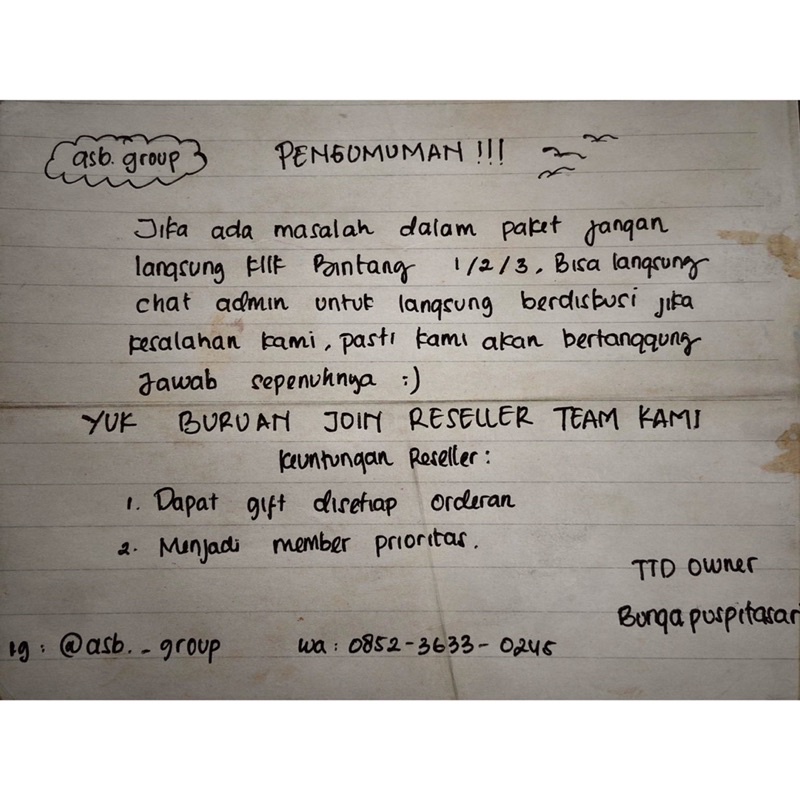 asb. group
PENGUMUMAN !!!
Jika ada masalah dalam paket jangan
langsung klik Bintang 1/2/3. Bisa langsung
chat admin untuk langsung berdiskusi jika
kesalahan kami, pasti kami akan bertanggung
jawab sepenuhnya :)
YUK BURUAN JOIN RESELLER TEAM KAMI
Keuntungan Reseller :
1. Dapat gift disetiap orderan
2. Menjadi member prioritas.
TTD Owner
Bunga puspitasari
ig : @asb._group
wa : 0852-3633-0245